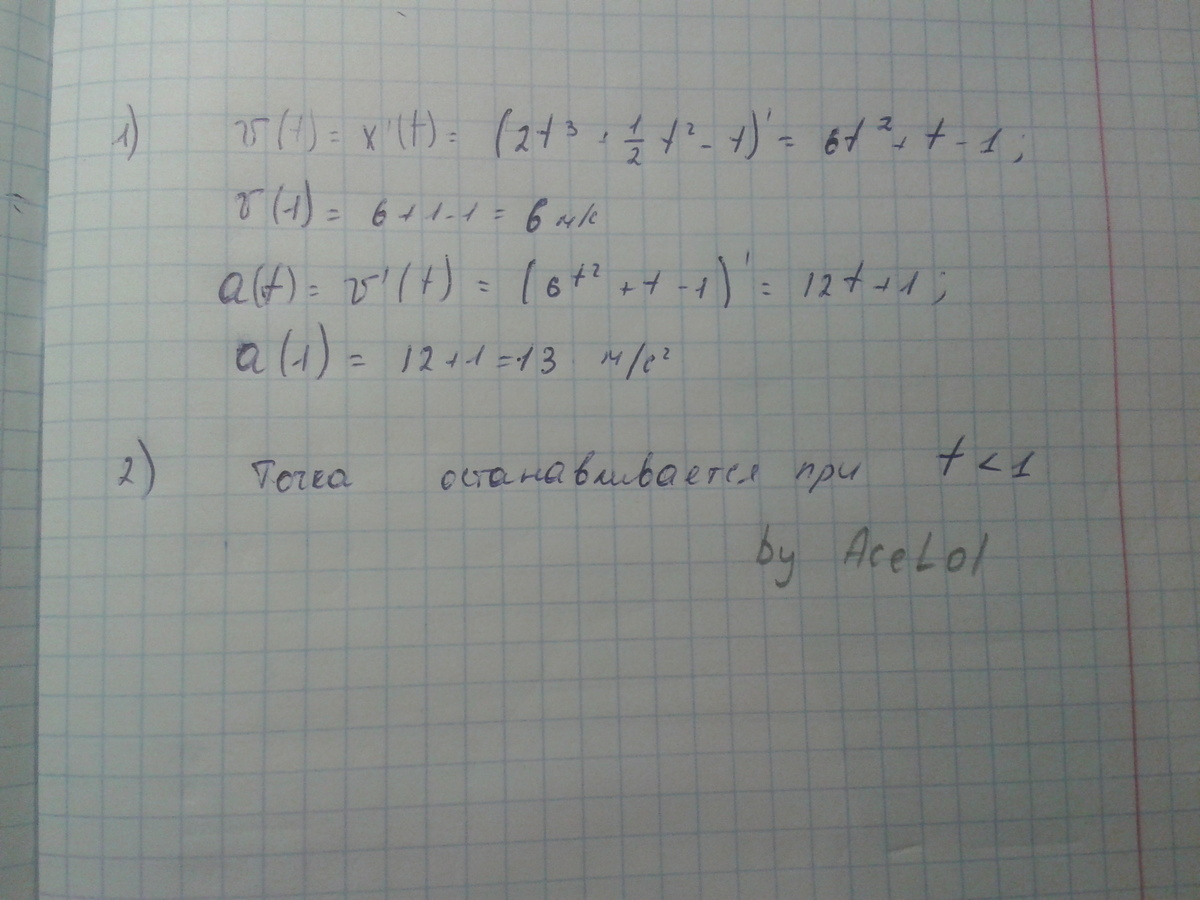 1) v(t) = x'(t) = (2t³ + 1/2 t² - t)' = 6t² + t - 1;
v(1) = 6 + 1 - 1 = 6 м/с
a(t) = v'(t) = (6t² + t - 1)' = 12t + 1;
a(1) = 12 + 1 = 13 м/с²
2) Точка останавливается при t < 1
by AceLol